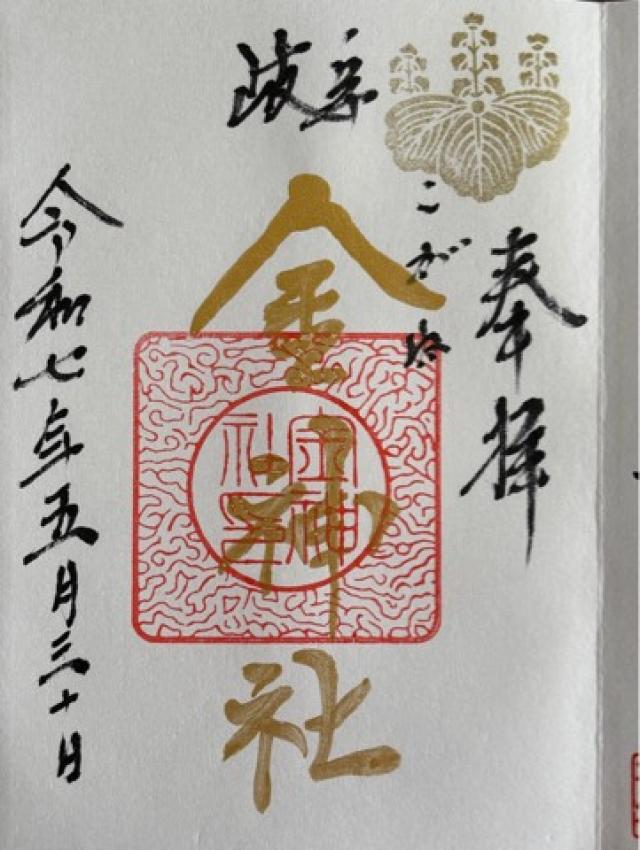 岐阜
奉拝
こがね
金神社
金神
社印
令和七年五月三十日